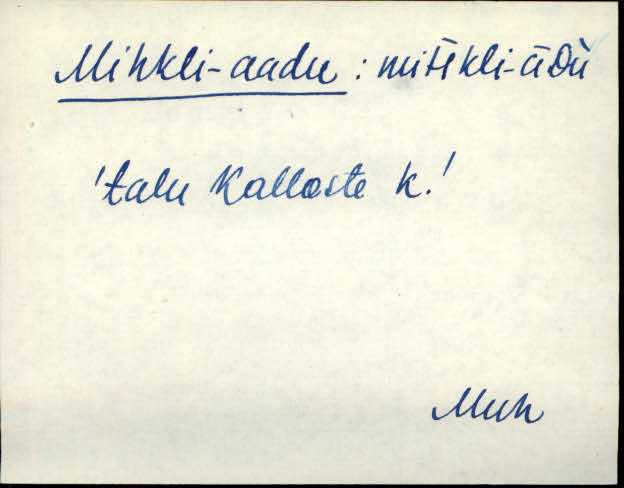 Mihkli-aadu : mihkli-āDu
'talu Kallaste k.'
Muh